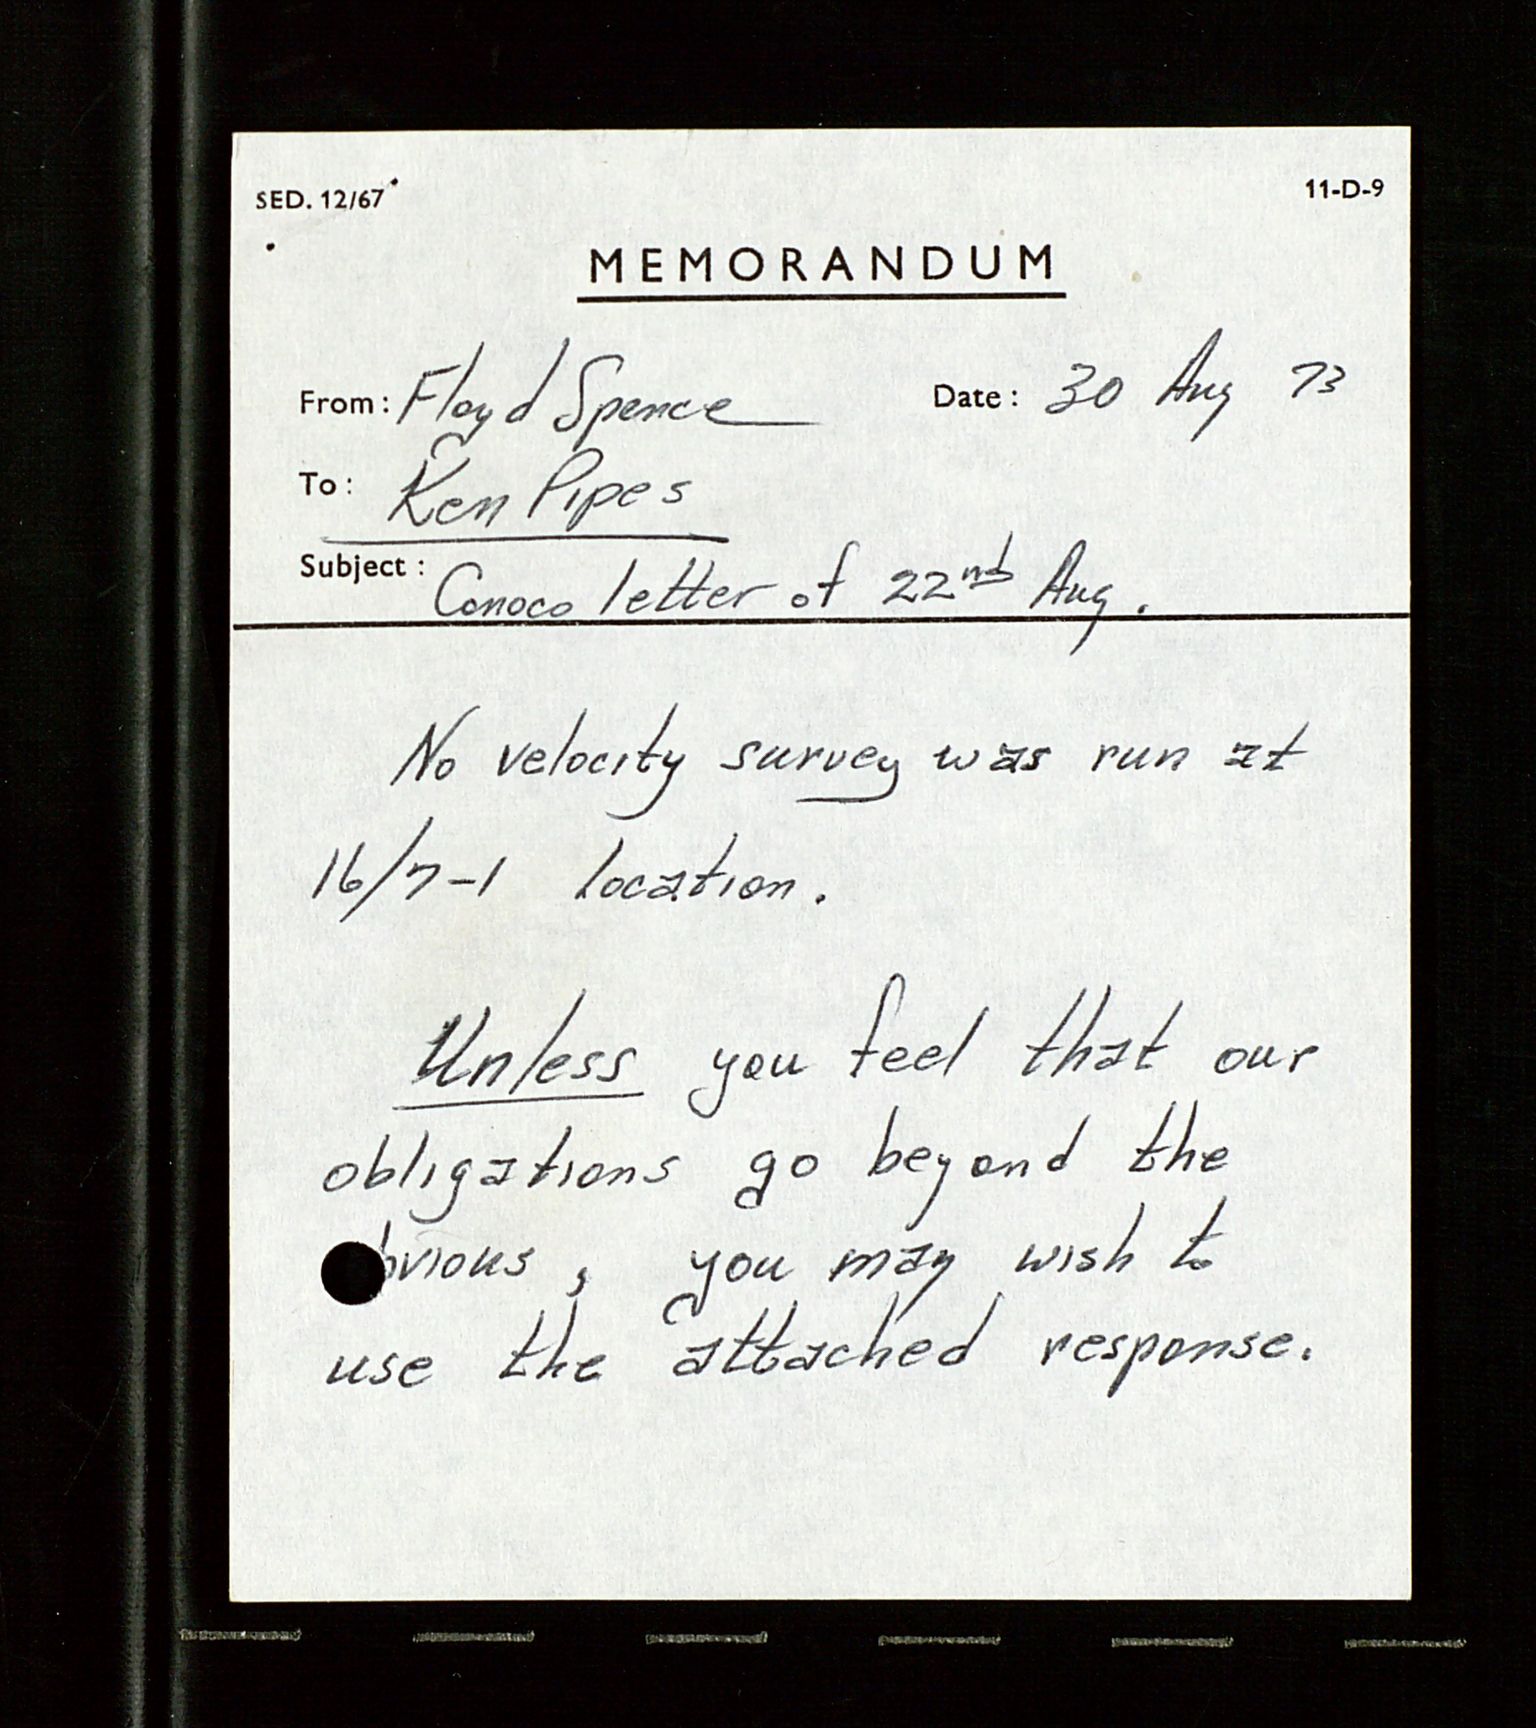 SED. 12/67
11-D-9
MEMORANDUM
From: Floyd Spence
Date: 30 Aug 73
To: Ken Pipes
Subject: Conoco letter of 22nd Aug.
No velocity survey was run at
16/7-1 location.
Unless you feel that our
obligations go beyond the
bvious, you may wish to
use the attached response.